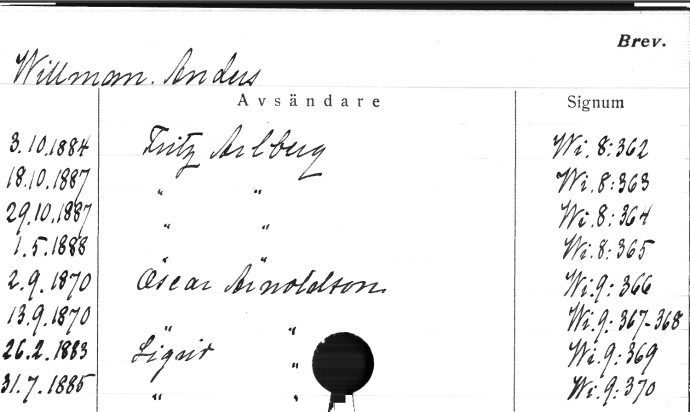 Brev.
Willman. Anders
Avsändare Signum
3.10.1884 Fritz Arlberg Wi. 8:362
18.10.1887 " " Wi. 8:363
29.10.1887 " " Wi. 8:364
1.5.1888 " " Wi. 8:365
2.9.1870 Oscar Arnoldson Wi. 9:366
13.9.1870 " " Wi. 9:367-368
26.2.1883 Sigrid " Wi. 9:369
31.7.1885 " " Wi. 9:370